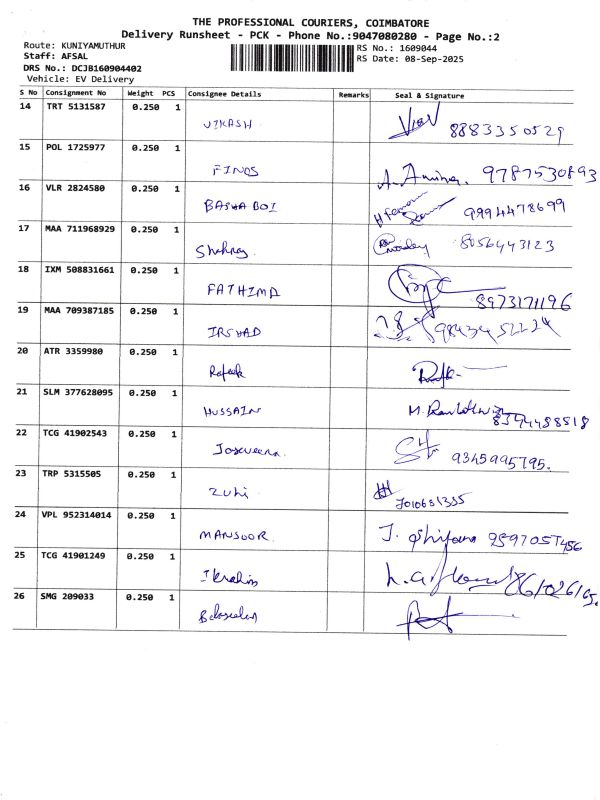 THE PROFESSIONAL COURIERS, COIMBATORE
Delivery Runsheet - PCK - Phone No.:9047080280 - Page No.:2
Route: KUNIYAMUTHUR
Staff: AFSAL
DRS No.: DCJB160904402
Vehicle: EV Delivery
RS No.: 1609044
RS Date: 08-Sep-2025
S No Consignment No Weight PCS Consignee Details Remarks Seal & Signature
14 TRT 5131587 0.250 1 VIKASH 8883350529
15 POL 1725977 0.250 1 FINOS A. Amina. 9787530893
16 VLR 2824580 0.250 1 BASHA BOI 9994478699
17 MAA 711968929 0.250 1 8056443123
18 IXM 508831661 0.250 1 FATHIMA 8973171196
19 MAA 709387185 0.250 1 IRSHAD
20 ATR 3359980 0.250 1 Rafeek
21 SLM 377628095 0.250 1 HUSSAIN M.
22 TCG 41902543 0.250 1 9345995795.
23 TRP 5315505 0.250 1 Zuhi
24 VPL 952314014 0.250 1 MANSOOR. J.
25 TCG 41901249 0.250 1 Ibrahim
26 SMG 209033 0.250 1